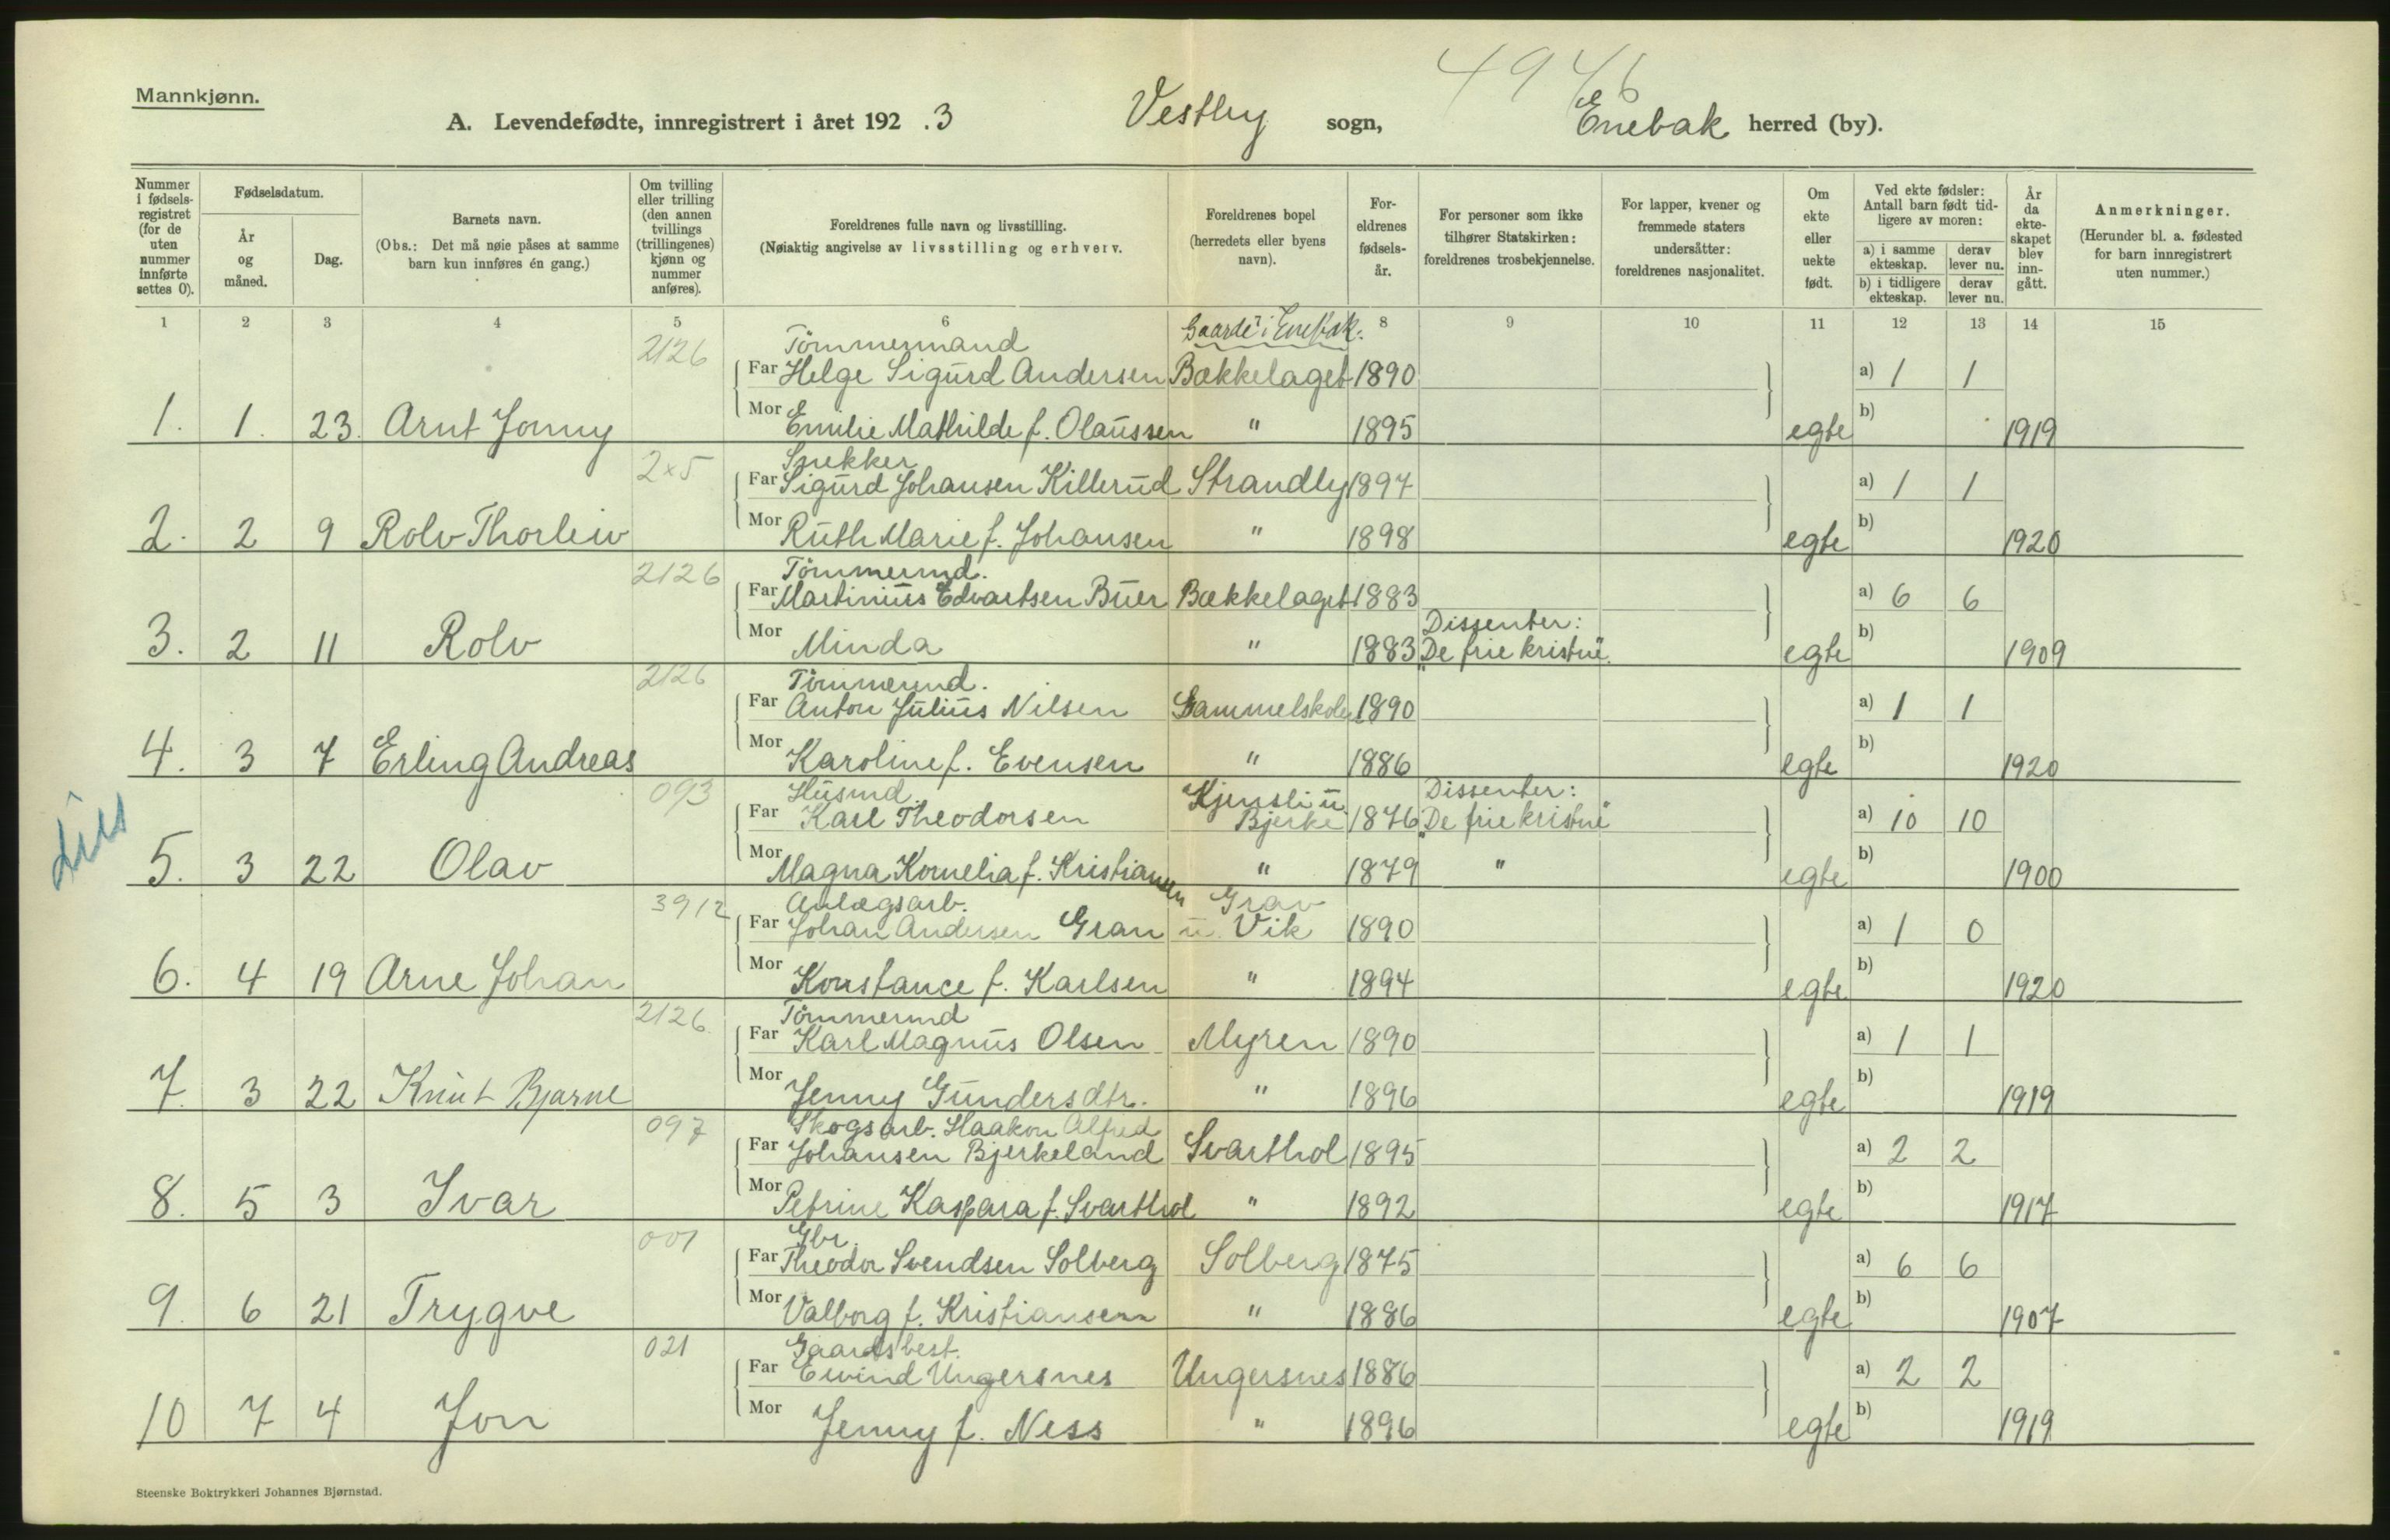 4946
Mannkjønn.
A. Levendefødte, innregistrert i året 192.3 Vestby sogn, Enebak herred (by).
Nummer i fødselsregistret (for de uten nummer innførte settes 0).
Fødselsdatum.
År og måned.
Dag.
Barnets navn.
(Obs.: Det må nøie påses at samme barn kun innføres én gang.)
Om tvilling eller trilling (den annen tvillings (trillingenes) kjønn og nummer anføres).
Foreldrenes fulle navn og livsstilling.
(Nøiaktig angivelse av livsstilling og erhverv.
Foreldrenes bopel (herredets eller byens navn).
Foreldrenes fødselsår.
For personer som ikke tilhører Statskirken: foreldrenes trosbekjennelse.
For lapper, kvener og fremmede staters undersåtter: foreldrenes nasjonalitet.
Om ekte eller uekte født.
Ved ekte fødsler: Antall barn født tidligere av moren:
a) i samme ekteskap. derav lever nu.
b) i tidligere ekteskap. derav lever nu.
År da ekteskapet blev inngått.
Anmerkninger.
(Herunder bl. a. fødested for barn innregistrert uten nummer.)
1 2 3 4 5 6 8 9 10 11 12 13 14 15
Gaarde i Enebak.
2126 Tömmermand
Far Helge Sigurd Andersen Bækkelaget 1890 a) 1 1
1. 1. 23. Arnt Jonny Mor Emilie Mathilde f. Olaussen " 1895 egte b) 1919
2x5 Snekker
Far Sigurd Johansen Killerud Strandby 1897 a) 1 1
2. 2 9 Rolv Thorleiv Mor Ruth Marie f. Johansen " 1898 egte b) 1920
2126 Tömmermd.
Far Martinius Edvartsen Buer Bækkelaget 1883 a) 6 6
Dissenter:
3. 2 11 Rolv Mor Minda " 1883 "De frie kristne". egte b) 1909
2126 Tömmermd.
Far Anton Julius Nilsen Gammelskolen 1890 a) 1 1
4. 3 7 Erling Andreas Mor Karoline f. Evensen " 1886 egte b) 1920
093 Husmd. Kjensli u. Dissenter:
Far Karl Theodorsen Bjerke 1876 "De frie kristne" a) 10 10
5. 3 22 Olav Mor Magna Kornelia f. Kristiansen " 1879 " egte b) 1900
3912 Anlægsarb. Grav
Far Johan Andersen Gran u. Vik 1890 a) 1 0
6. 4 19 Arne Johan Mor Konstance f. Karlsen " 1894 egte b) 1920
2126. Tömmermd
Far Karl Magnus Olsen Myren 1890 a) 1 1
7. 3 22 Knut Bjarne Mor Jenny Gundersdtr. " 1896 egte b) 1919
097 Skogsarb. Haakon Alfred
Far Johansen Bjerkeland Svarthol 1895 a) 2 2
8. 5 3 Ivar Mor Petrine Kaspara f. Svarthol " 1892 egte b) 1917
001 Gbr.
Far Theodor Svendsen Solberg Solberg 1875 a) 6 6
9. 6 21 Trygve Mor Valborg f. Kristiansen " 1886 egte b) 1907
021 Gaardsbest.
Far Eivind Ungersnes Ungersnes 1886 a) 2 2
10 7 4 Jon Mor Jenny f. Ness " 1896 egte b) 1919
Steenske Boktrykkeri Johannes Bjørnstad.